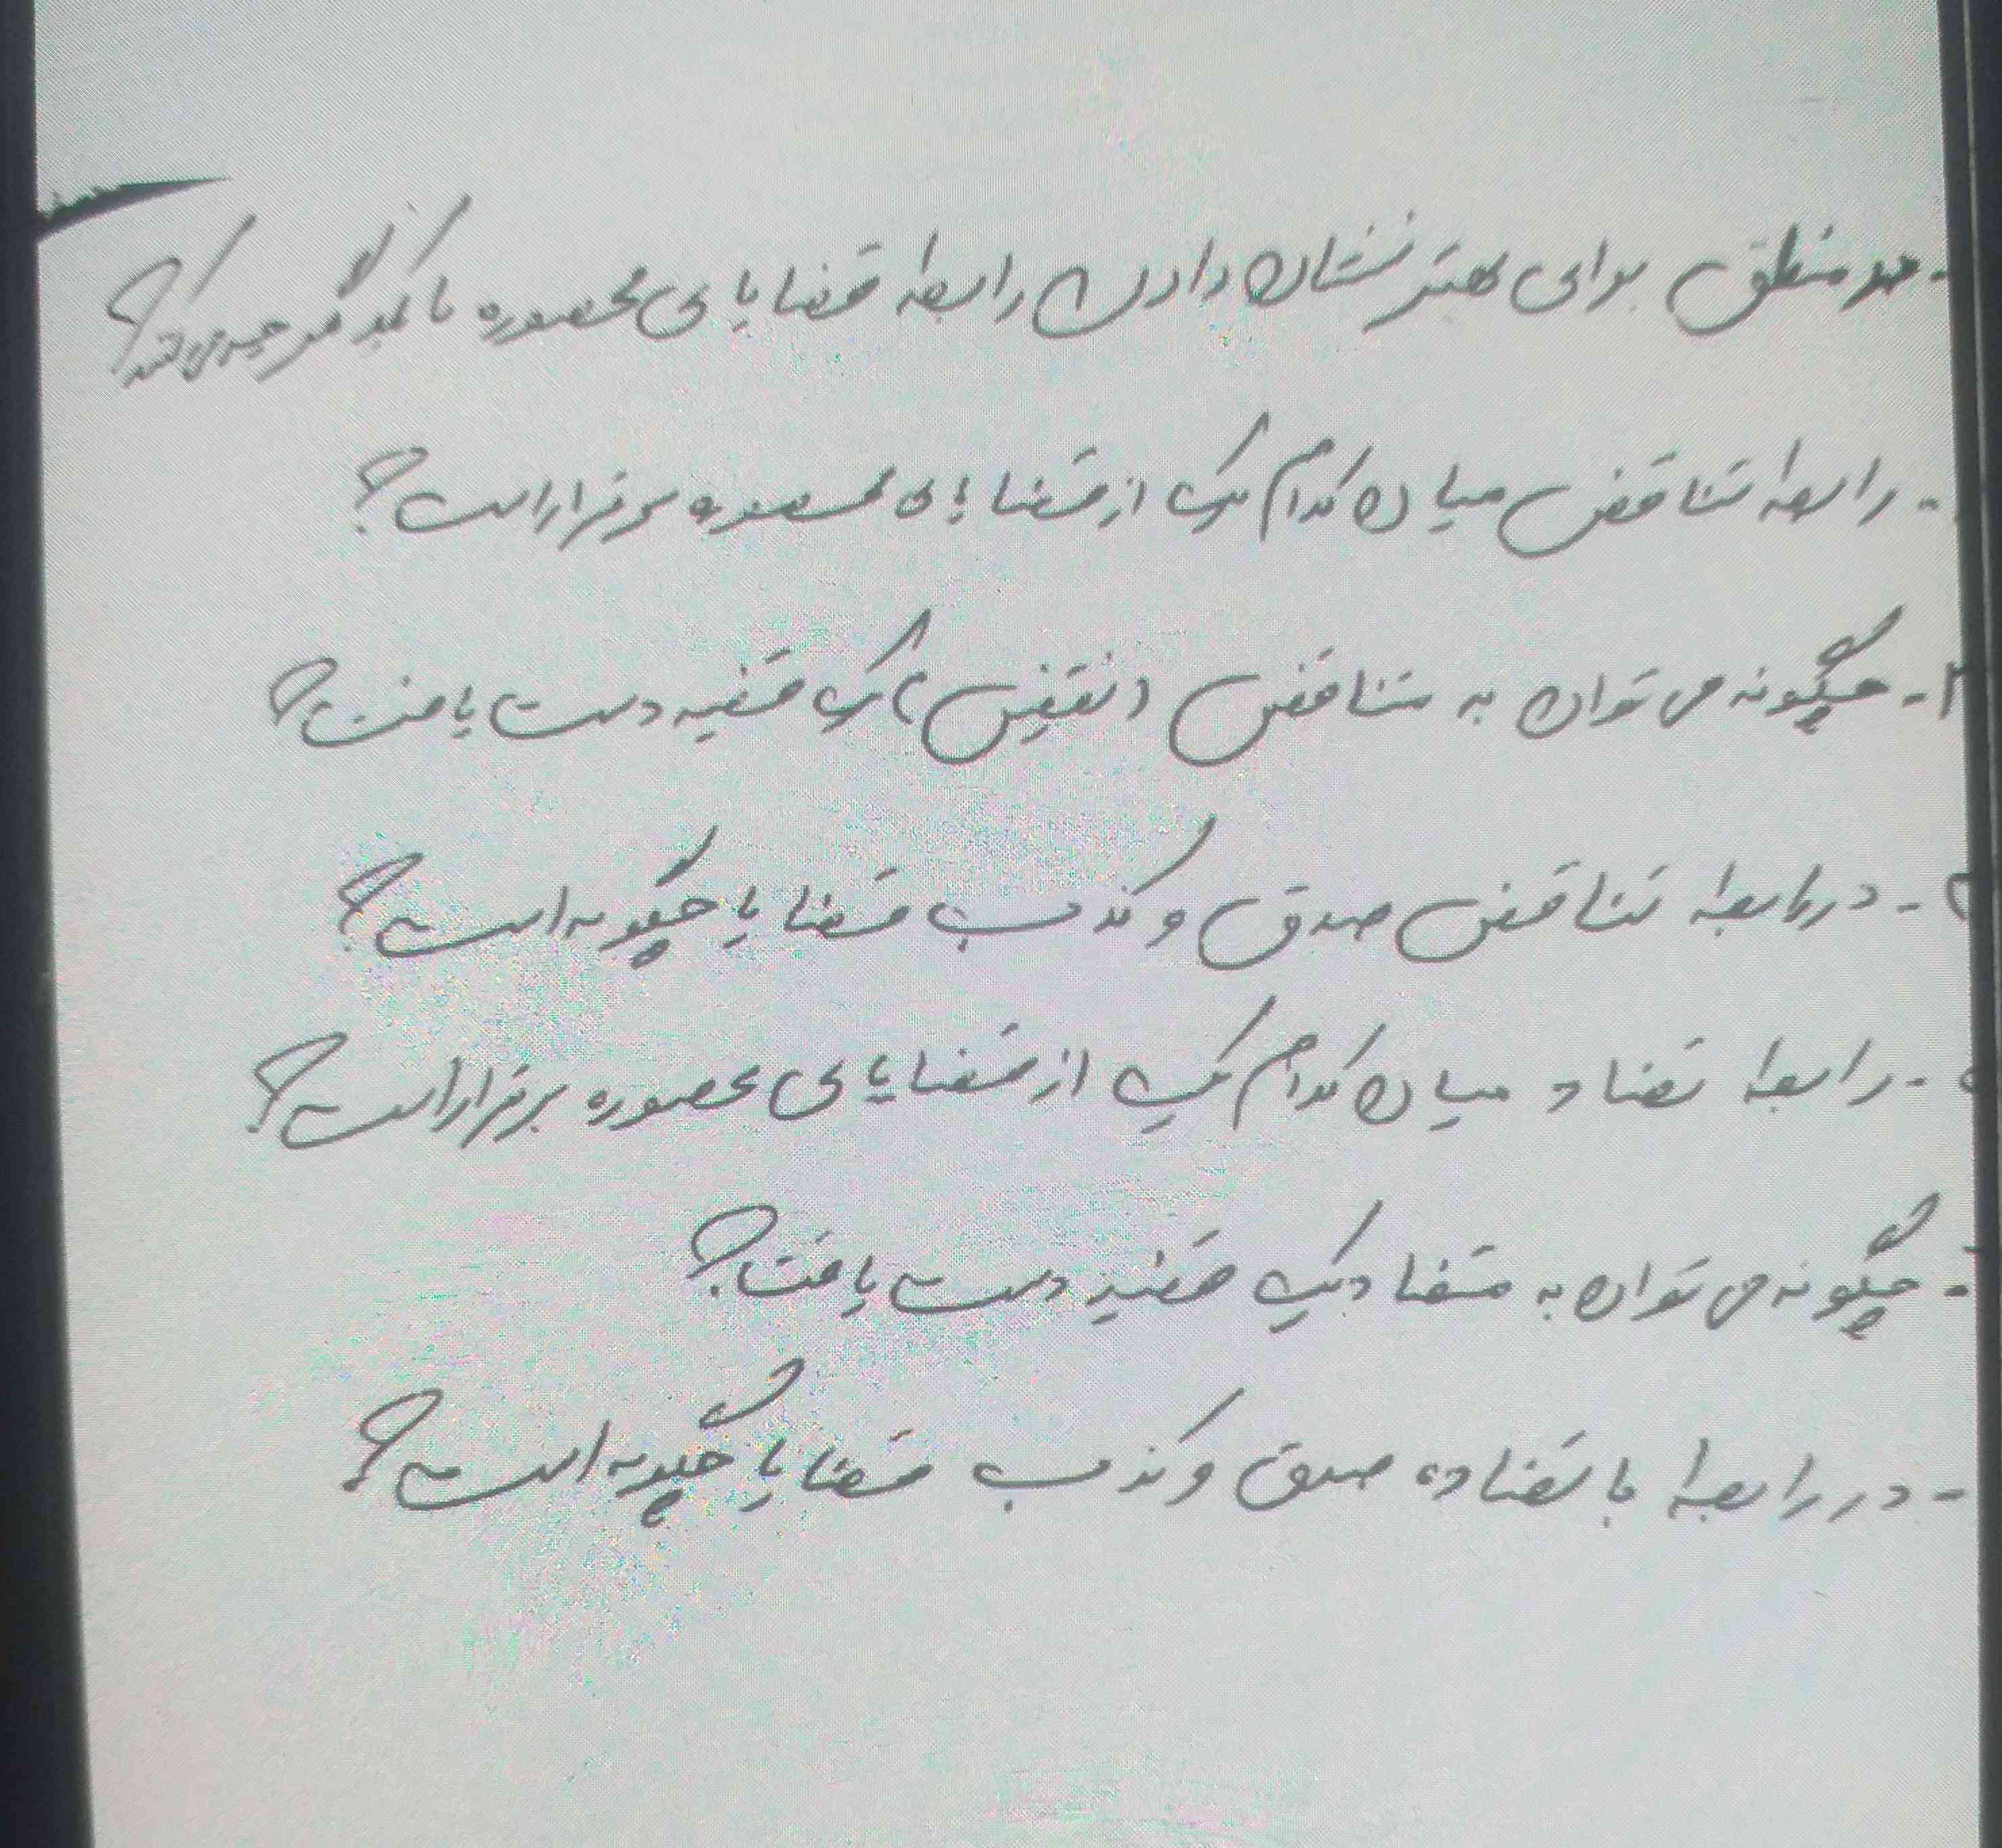 - در منطق برای بهتر نشان دادن رابطه قضایای محصوره با یکدیگر چه می‌کنند؟
- رابطه تناقض میان کدام یک از قضایای محصوره برقرار است؟
۳- چگونه می‌توان به متناقض (نقیض) یک قضیه دست یافت؟
- در رابطه تناقض صدق و کذب قضایا چگونه است؟
- رابطه تضاد میان کدام یک از قضایای محصوره برقرار است؟
- چگونه می‌توان به متضاد یک قضیه دست یافت؟
- در رابطه با تضاد، صدق و کذب قضایا چگونه است؟